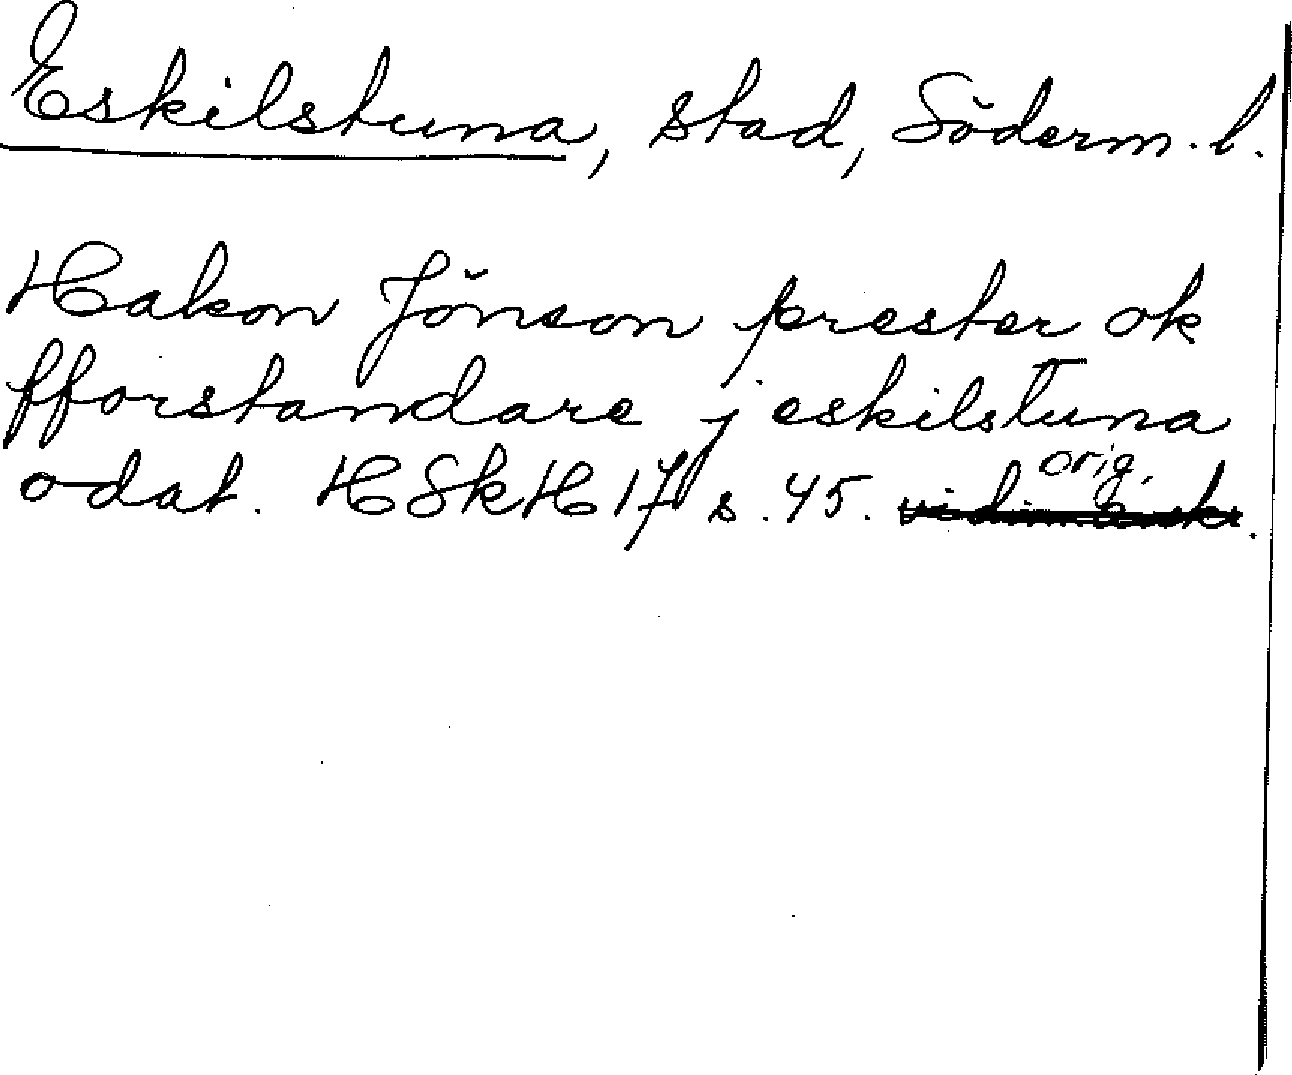 Eskilstuna, stad, Söderm. l.
Hakon Jönson prester ok
fforstandare j eskilstuna
odat. HSkH 17 s. 45. orig.